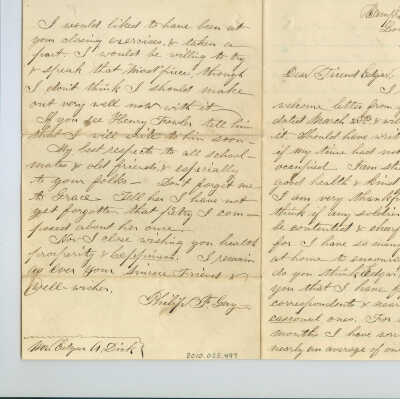 I would liked to have been at
your closing exercises, & taken a
part. I would be willing to try
& speak that "Most" piece, though
I don't think I should make
out very well now with it
If you see Henry Fowler tell him
that I will write to him soon.
My best respects to all school-
mates & old friends, & especially
to your folks — Don't forget me
to Grace. Tell her I have not
yet forgotten that Poetry I com-
posed about her once.
Now I close wishing you health
prosperity & happiness. I remain
as ever Your Sincere Friend &
Well-wisher.
Philip F.
Edgar A. Dick
2010.025.497
Camp
Dear Friend Edgar,
welcome letter from
dated March 25th &
it. Should have
if my time had not
occupied. I am
good health & kind
I am very thankf
think if any soldier
be contented &
for I have so man
at home to
do you think, edgar
you that I have
correspondents &
casional ones. For
months I have
nearly an average of one